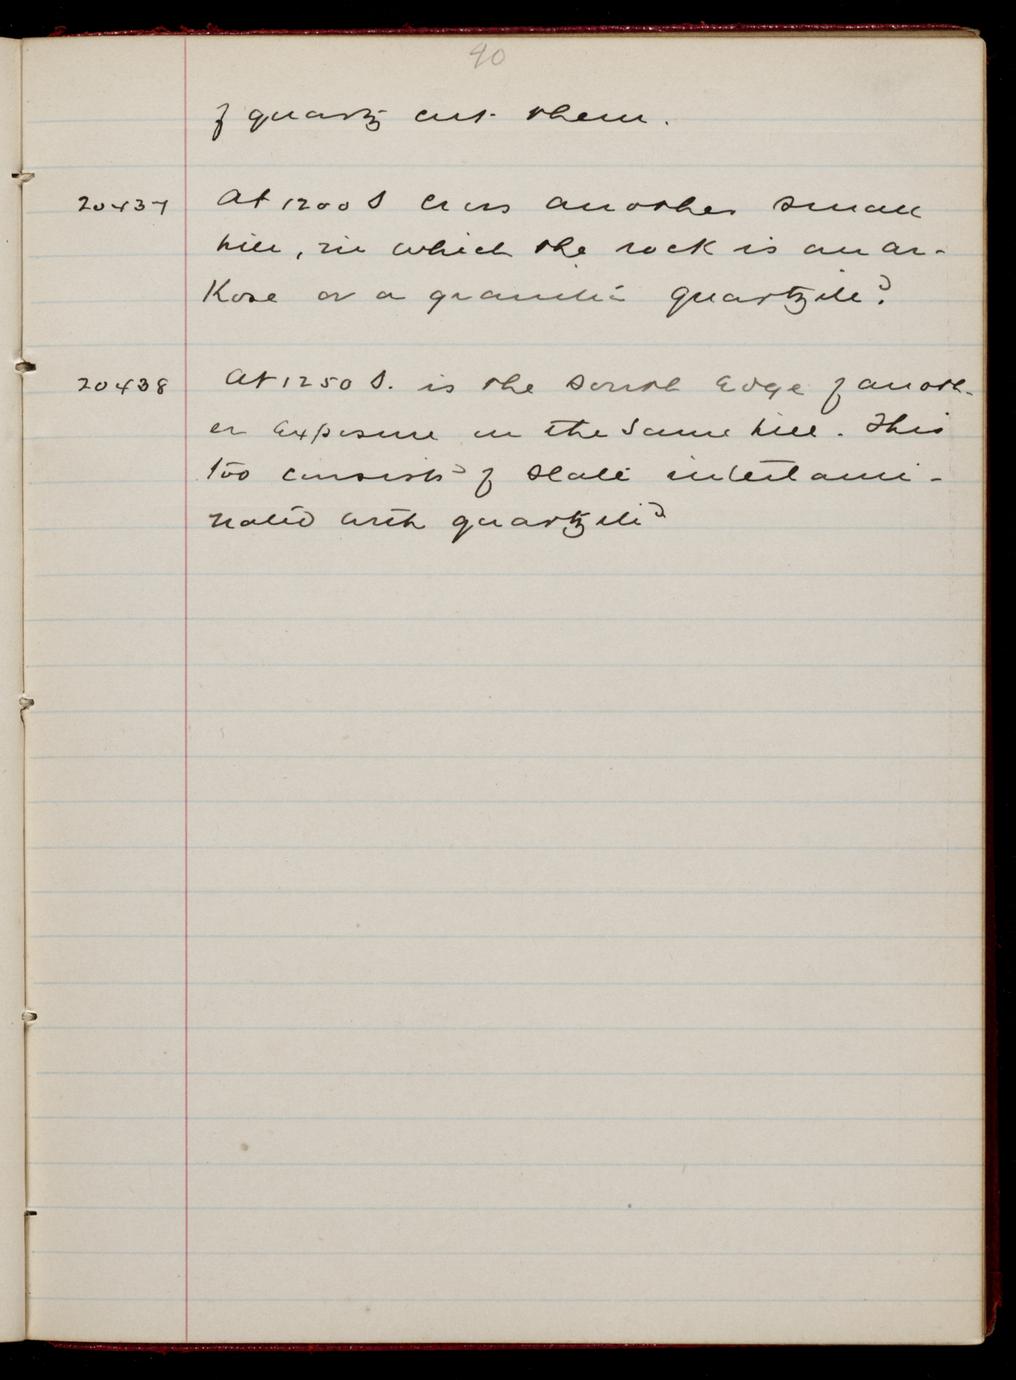 40
of quartz cut them.
20437 At 1200 S cross another small
hill, in which the rock is an ar-
Kose or a granitic quartzite?
20438 At 1250 S. is the South Edge of anoth-
er Exposure on the Same hill. This
too consists of Slate interlami-
nated with quartzite?